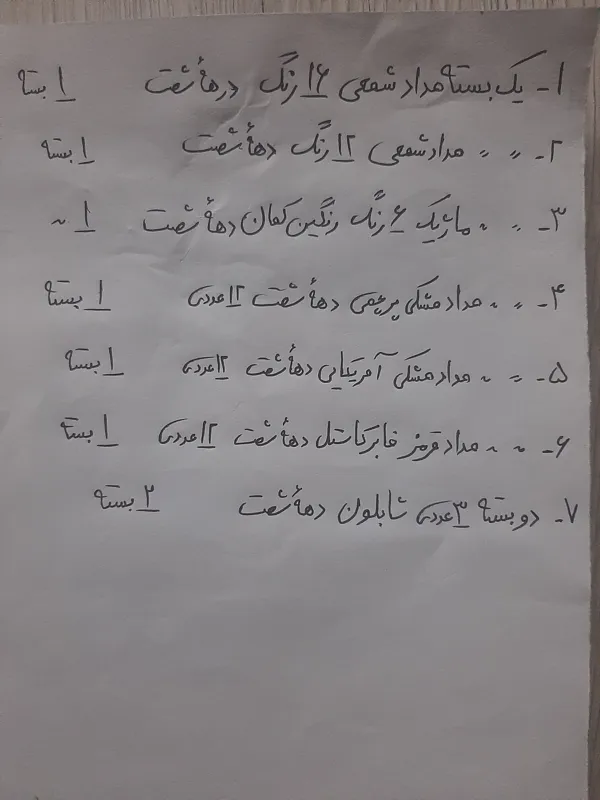 ۱- یک بسته مداد شمعی ۱۶ رنگ دههٔ شصت ۱ بسته
۲- 〃 〃 مداد شمعی ۱۲ رنگ دههٔ شصت ۱ بسته
۳- 〃 〃 ماژیک ۶ رنگ رنگین کمان دههٔ شصت ۱ 〃
۴- 〃 〃 مداد مشکی پرچمی دههٔ شصت ۱۲ عددی ۱ بسته
۵- 〃 〃 مداد مشکی آمریکایی دههٔ شصت ۱۲ عددی ۱ بسته
۶- 〃 〃 مداد قرمز فابرکاستل دههٔ شصت ۱۲ عددی ۱ بسته
۷- دو بسته ۳ عددی شابلون دههٔ شصت ۲ بسته